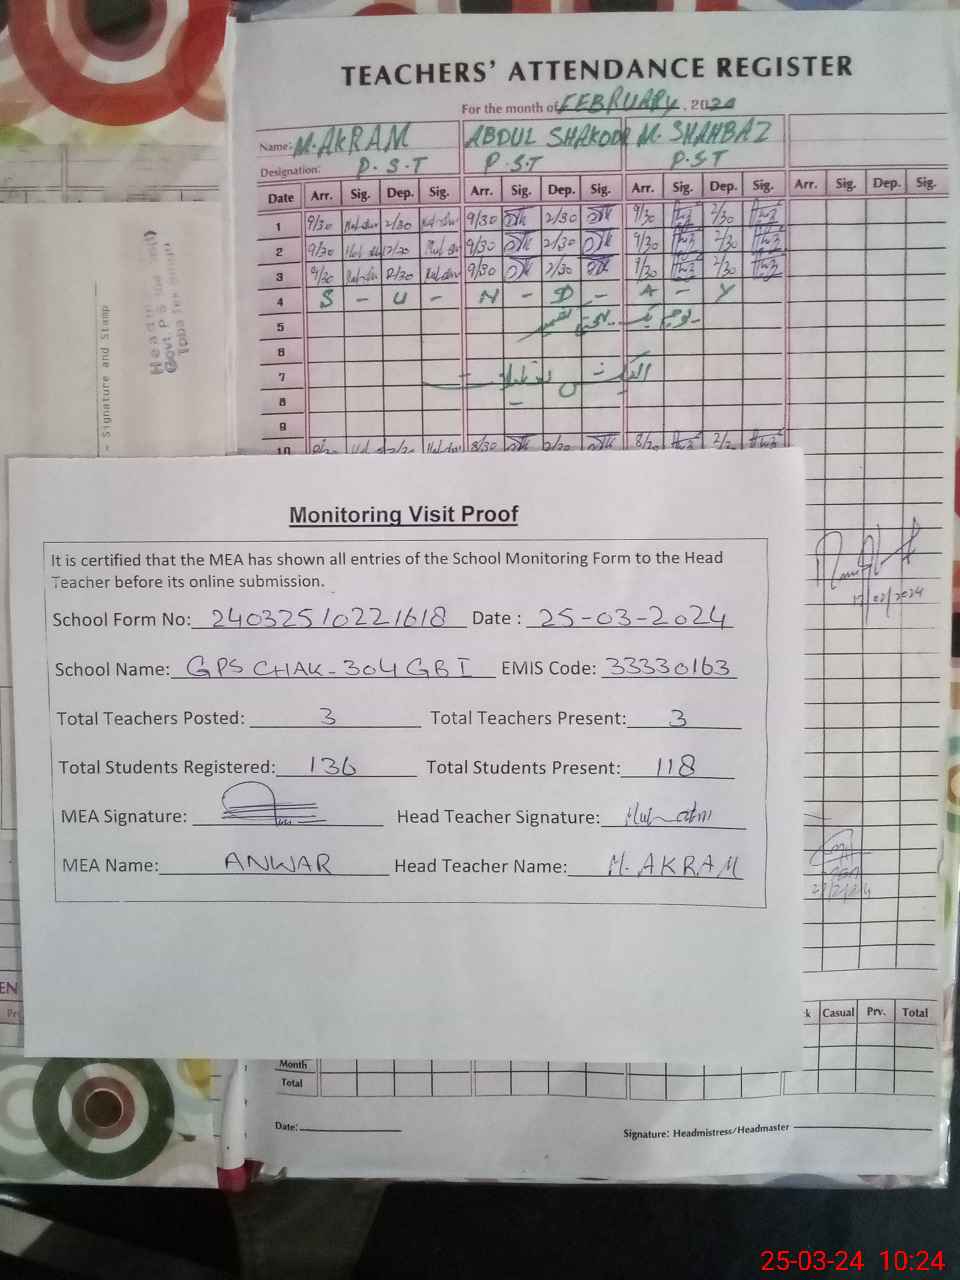 TEACHERS' ATTENDANCE REGISTER
For the month of FEBRUARY, 2024
Name: M.AKRAM ABDUL SHAKOOR M. SHAHBAZ
Designation: P.S.T P.S.T P.S.T
Date Arr. Sig. Dep. Sig. Arr. Sig. Dep. Sig. Arr. Sig. Dep. Sig. Arr. Sig. Dep. Sig.
1 9/30 2/30 9/30 2/30 9/30 2/30
2 9/30 2/30 9/30 2/30 9/30 2/30
3 9/30 2/30 9/30 2/30 9/30 2/30
4 S - U - N - D - A - Y
5
6
7
8
9
10 8/30
Signature and Stamp
Monitoring Visit Proof
It is certified that the MEA has shown all entries of the School Monitoring Form to the Head
Teacher before its online submission.
School Form No: 24032510221618 Date : 25-03-2024
School Name: GPS CHAK-304 GB I EMIS Code: 33330163
Total Teachers Posted: 3 Total Teachers Present: 3
Total Students Registered: 136 Total Students Present: 118
MEA Signature: Head Teacher Signature:
MEA Name: ANWAR Head Teacher Name: M. AKRAM
Casual Prv. Total
Month
Total
Date:
Signature: Headmistress/Headmaster
25-03-24 10:24